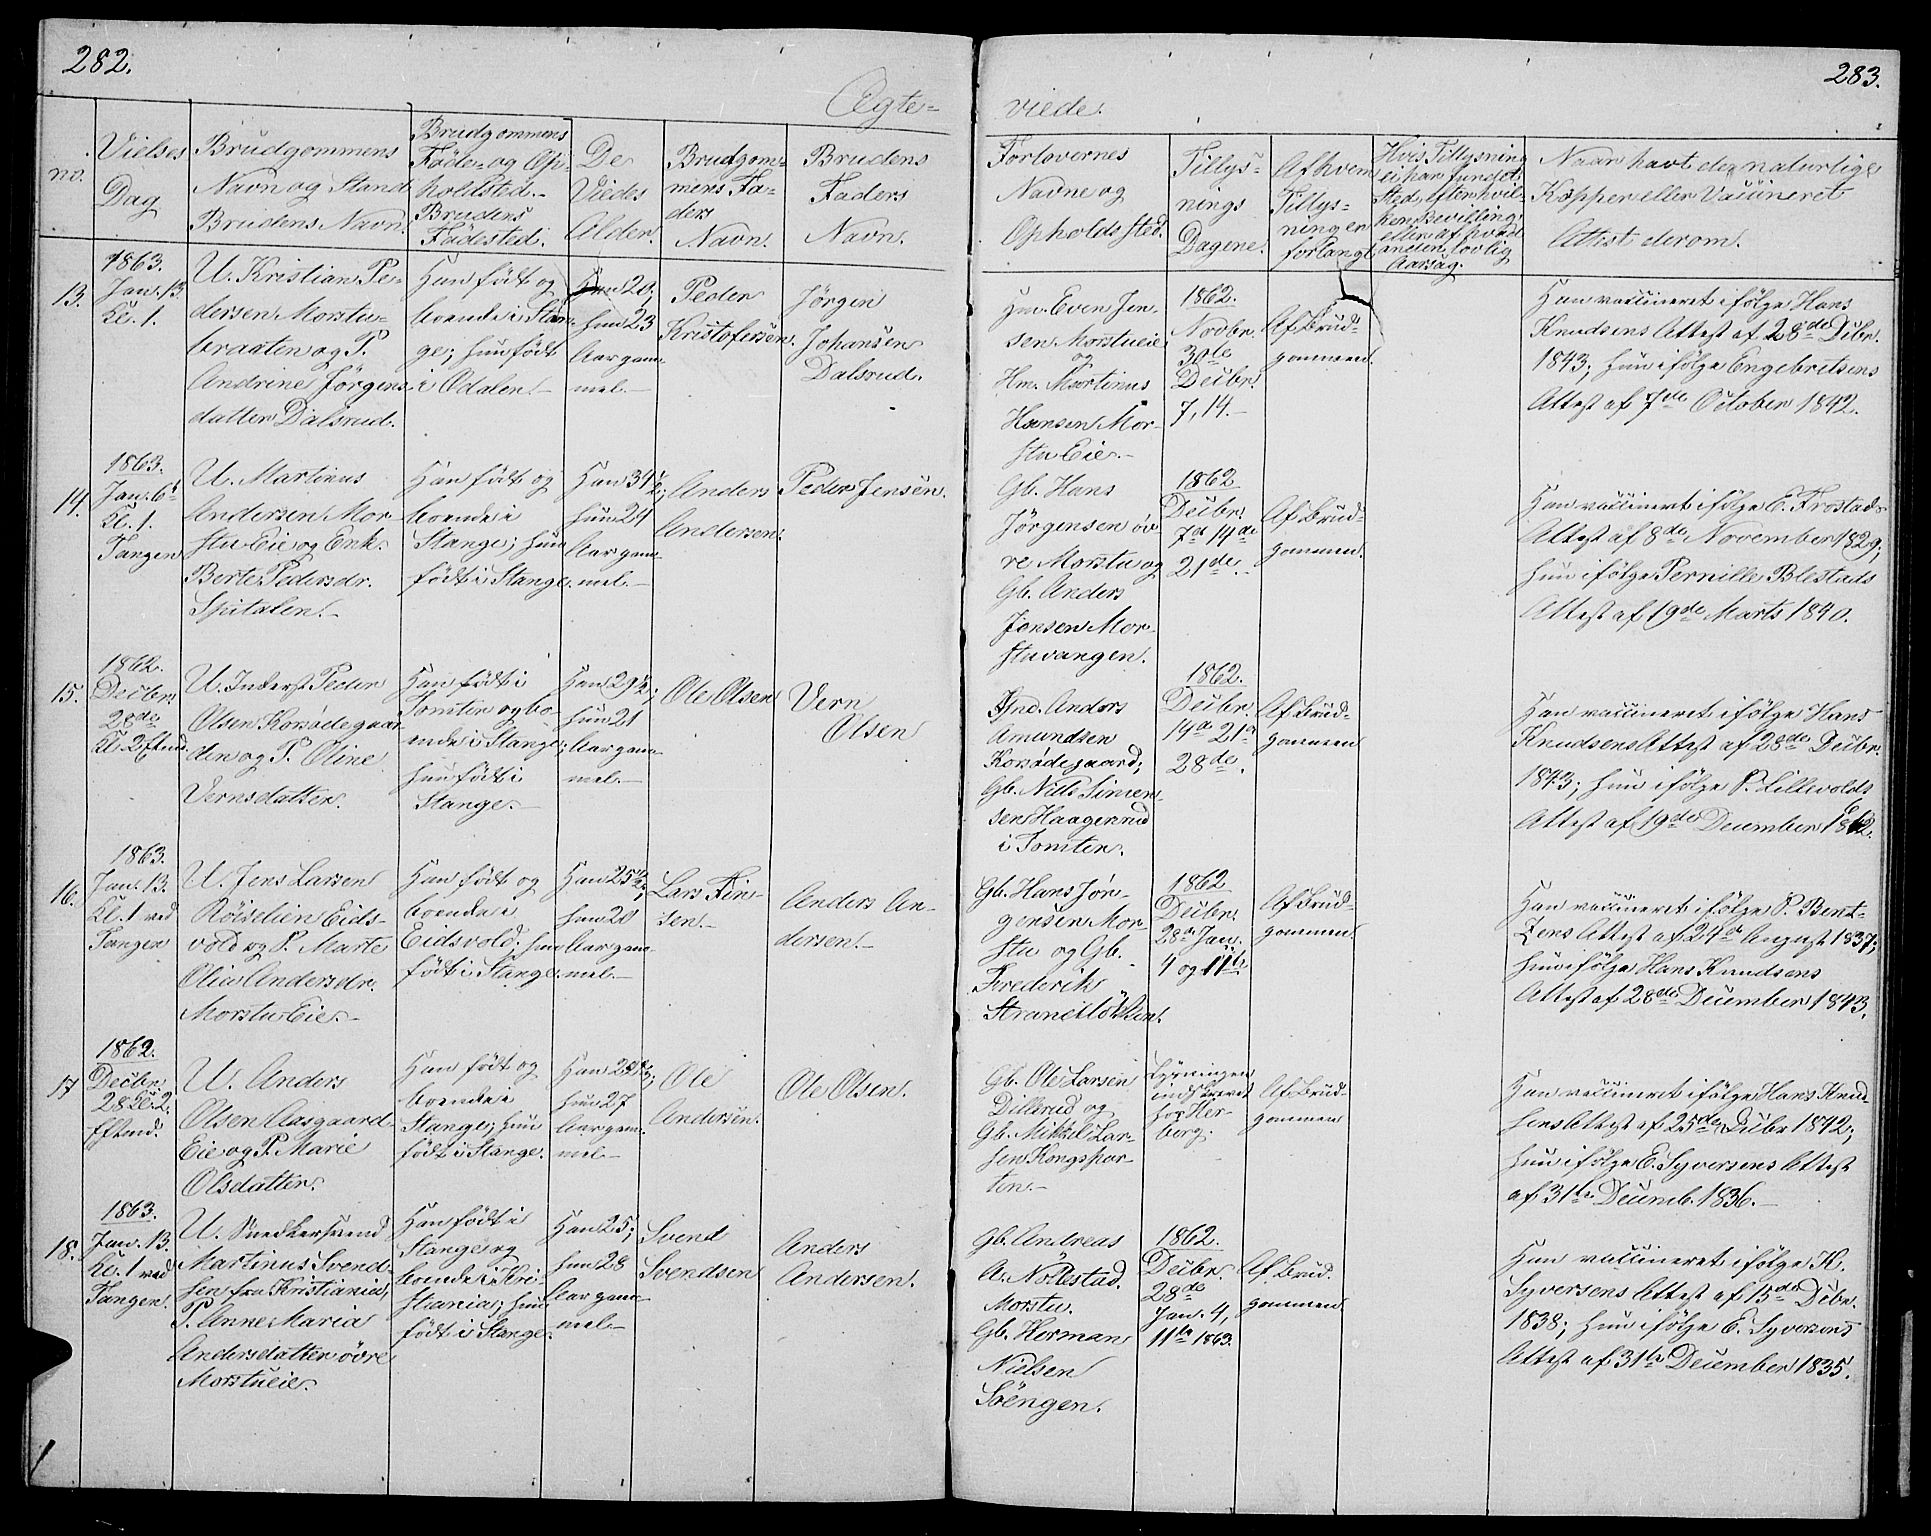 282.
283.
Ægte-
viede.
no.
Vielses
Dag
Brudgommens
Navn og Stand
Brudens Navn.
Brudgommens
Føde- og Op-
holdsted.
Brudens
Fødested.
De
Viedes
Alder.
Brudgom-
mens Fa-
ders
Navn.
Brudens
Faders
Navn.
Forlovernes
Navne og
Opholdssted.
Tillys-
nings
Dagene.
Af hvem
Tillys-
ningen er
forlangt
Hvis Tillysning
ei har fundet
Sted, efter hvil-
ken Bevilling,
eller af hvad
anden lovlig
Aarsag.
Naar havt de naturlige
Kopper eller Vaccineret
Attest derom.
13.
1863.
Jan. 13.
Kl. 1.
U. Kristian Pe-
dersen Morstu-
braaten og P.
Andrine Jørgens-
datter Dalsrud.
Han født og
boende i Stan-
ge; hun født
i Odalen.
Han 20,
hun 23
Aar gam-
mel.
Peder
Kristofersen.
Jørgen
Johansen
Dalsrud.
Hm. Even Jen-
sen Morstueie
og
Hm. Martinus
Hansen Mor-
stu Eie.
1862.
Novbr.
30te
Decbr.
7, 14.
Af Brud-
gommen.
Han vaccineret ifølge Hans
Knudsens Attest af 28de Decbr.
1843; hun ifølge Engebretsens
Attest af 7de October 1842.
14.
1863.
Jan. 6te
Kl. 1.
Tangen
U. Martinus
Andersen Mor-
stu Eie og Enk.
Berte Pedersdr.
Spitalen.
Han født og
boende i
Stange; hun
født i Stange.
Han 34½;
hun 24
Aar gam-
mel.
Anders
Andersen.
Peder Jensen.
Gb. Hans
Jørgensen øv-
re Morstu og
Gb. Anders
Jensen Mor-
stuvangen.
1862
Decbr.
7de 14de
21de.
Af Brud-
gommen.
Han vaccineret ifølge E. Frostads
Attest af 8de November 1829;
hun ifølge Pernille Blestads
Attest af 19de Marts 1840.
15.
1862.
Decbr.
28de
Kl. 2 Eftmd.
U. Inderst Peder
Olsen Korsødegaar-
den og P. Oline
Vernsdatter.
Han født i
Romten og bo-
ende i Stange;
hun født i
Stange.
Han 29½;
hun 21
Aar gam-
mel.
Ole Olsen
Vern
Olsen
Ind. Anders
Amundsen
Korsødegaard;
Gb. Nils Simen-
sen Haagenrud
i Romten.
1862.
Decbr.
14de 21de
28de.
Af Brud-
gommen
Han vaccineret ifølge Hans
Knudsens Attest af 28de Decbr.
1843; hun ifølge P. Lillevolds
Attest af 19de December 1862.
16.
1863.
Jan. 13.
Kl. 1 ved
Tangen
U. Jens Larsen
Røiselien Eids-
vold og P. Marte
Olia Andersdr.
Morstu Eie.
Han født og
boende i
Eidsvold; hun
født i Stange.
Han 25½;
hun 20
Aar gam-
mel.
Lars Fin-
sen.
Anders An-
dersen.
Gb. Hans Jør-
gensen Mor-
stu og Gb.
Frederik
Strandløkken.
1862
Decbr.
28de Jan.
4 og 11te
Af Brud-
gommen.
Han vaccineret ifølge P. Bent-
zens Attest af 24de August 1837;
hun ifølge Hans Knudsens
Attest af 28de December 1843.
17
1862.
Decbr.
28 Kl. 2.
Eftmd.
U. Anders
Olsen Aasgaard-
Eie og P. Marie
Olsdatter.
Han født og
boende i
Stange; hun
født i Stange.
Han
hun 27
Aar gam-
mel
Ole
Andersen.
Ole Olsen.
Gb. Ole Larsen
Dillerud og
Gb. Mikkel Lar-
sen Kongspor-
ten.
Lysningen
indskrevet
hos Her-
berg.
Af Brud-
gommen
Han vaccineret ifølge Hans Knud-
sens Attest af 25de Decbr 1842;
hun ifølge E. Syversens Attest
af 31te Decemb. 1836.
18.
1863.
Jan. 13.
Kl. 1 ved
Tangen.
U. Snedkersvend
Martinus Svend-
sen fra Kristiania,
P. Anne Maria
Andersdatter øvre
Morstueie.
Han født i
Stange og
boende i Kri-
stiania; hun
født i Stange.
Han 25;
hun 28
Aar gam-
mel
Svend
Svendsen
Anders
Andersen.
Gb. Andreas
A. Nøttestad.
Morstu.
Gb. Herman
Nielsen
Søengen.
1862.
Decbr.
28de
Jan. 4,
11te 1863.
Af Brud-
gommen
Han vaccineret ifølge K.
Syversens Attest af 15de Decbr.
1838; hun ifølge E. Syversens
Attest af 31te December 1835.